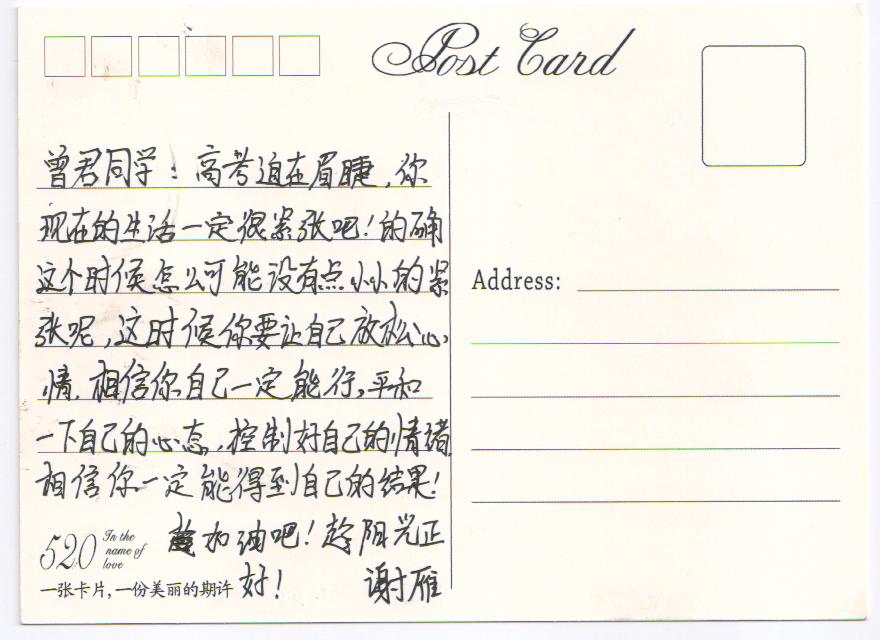 Post Card
曾君同学：高考迫在眉睫，你
现在的生活一定很紧张吧！的确
这个时候怎么可能没有点小小的紧
张呢，这时候你要让自己放松心
情，相信你自己一定能行，平和
一下自己的心态，控制好自己的情绪
相信你一定能得到自己的结果！
加油吧！趁阳光正
好！
谢雁
520 In the name of love
一张卡片，一份美丽的期许
Address: